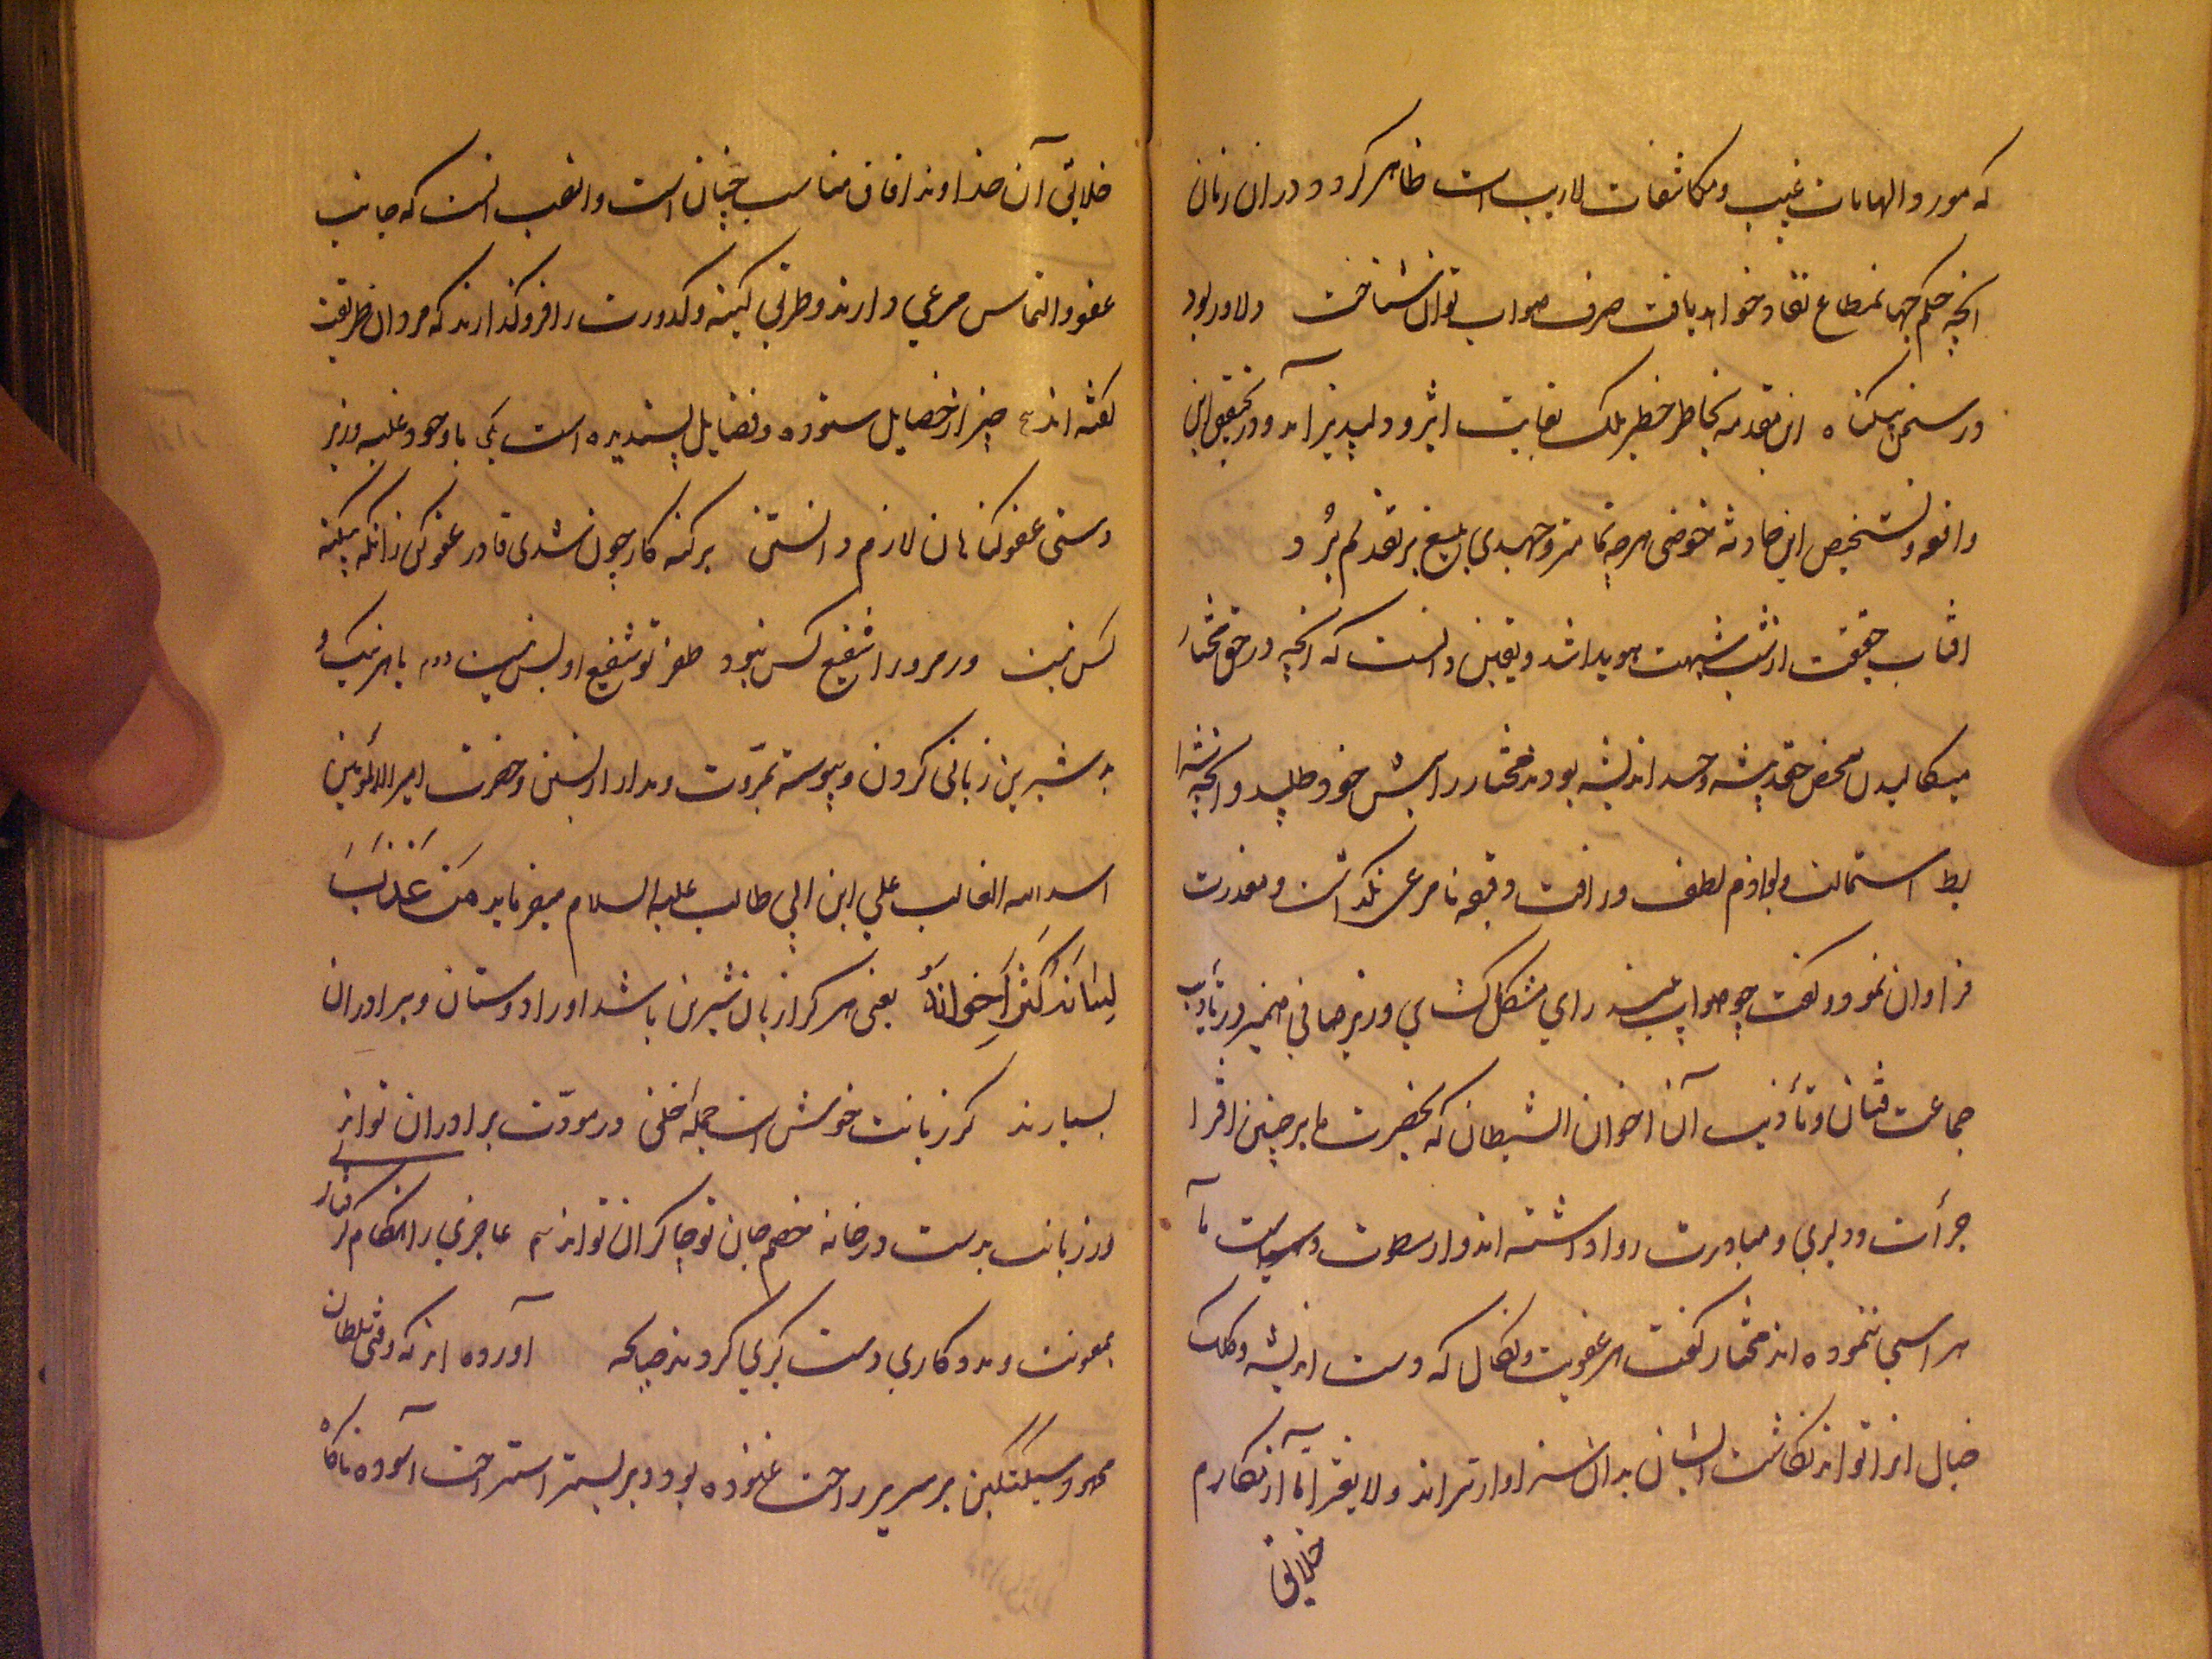 که مورد الهامات غیب و مکاشفات لاریب است ظاهر کردد دران زمان
انچه حکم جهانمطاع نفاذ خواهد یافت صرف صواب توان شناخت ولاور بود
در سخن بیکناه این مقدمه بخاطر خطیر ملک بغایت اثر و دلپذیر آمد و در تحقیق این
واقعه و تشخیص این حادثه خوضی هرچه تمامتر و جهدی بلیغ بر تقدیم برُد
افتاب حقیقت از شب شبهت هویدا شد و یقین دانست که انچه در حق مختار
میسکالیدند محض حقد پیشه و حسد اندیشه بودند مختار را پیش خود طلبید و انچه شرا
یط استمالت و لوازم لطف و رافت دقیقه نامرعی نکداشت و معذرت
فراوان نمود و کفت چه صواب بیند رای مشکل کشای وزیر صافی ضمیر در تادیب
جماعت فتان و تأذیب آن اخوان الشیطان که بحضرت ما بر چنین افترا
جرأت و دلیری و مبادرت روا داشته اند و از سطوت و سیاست ما
هراسی ننموده اند مختار کفت هر عقوبت و نکال که دست اندیشه و کلک
خیال انرا تواند نکاشت ایشان بدان سزاوارتراند ولایعتر اما آز مکارم
خلایق
خلایق آن خداوند افاق مناسب چنان است و انسب انست که جانب
عفو و التماس مرعی دارند و طریق کینه و کدورت را فروکذارند که مردان طریقت
کفته اند چیز از خصایل ستوده و فضایل پسندیده است یکی با وجود غلبه وزیر
دستی عفو کناهان لازم دانستن بر کنه کار چون شدی قادر عفو کن زانکه بیکنه
کس نیست ور مرورا شفیع کس نبود طفر تو شفیع او بس نیست دوم با هر نیک و
بد شیرین زبانی کردن و پیوسته بمروّت و مدارا زیستن وحضرت امیر المؤمنین
اسد الله الغالب علی ابن ابی طالب علیه السلام میفرماید مَنْ عَذُبَ
لِسَانُهُ كَثُرَ اَخِوَانُهُ یعنی هر کرا زبان شیرین باشد او را دوستان و برادران
بسیارند کر زبانت خوش است جمله خلق در مودّت برادران تواند
ور زبانت بدست در خانه خصم جان تو چاکران تواند سیم عاجزی را هنکام کرفتار
بمعونت و مدد کاری دست کیری کردند چنانکه آورده اند که وقتی سلطان
محمود سبکتکین بر سریر راحت غنوده بود و بر بستر استراحت آسوده ناکاه